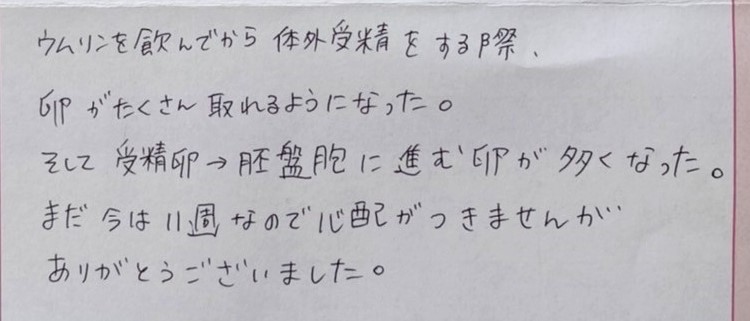 ウムリンを飲んでから 体外受精をする際、
卵がたくさん取れるようになった。
そして 受精卵→胚盤胞に進む卵が多くなった。
まだ今は11週なので心配がつきませんが
ありがとうございました。